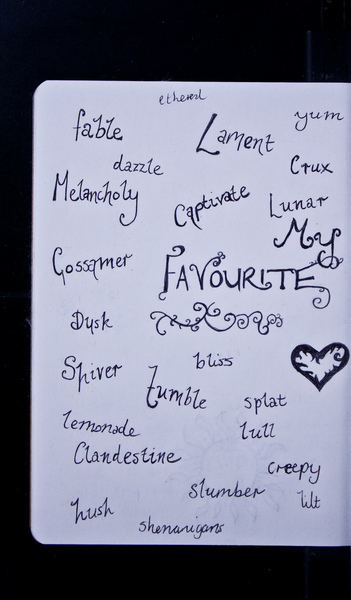 ethereal
yum
fable
Lament
dazzle
Crux
Melancholy
Captivate
Lunar
My
Gossamer
FAVOURITE
Dusk
bliss
Shiver
tumble
splat
lemonade
lull
Clandestine
creepy
slumber
lilt
hush
shenanigans